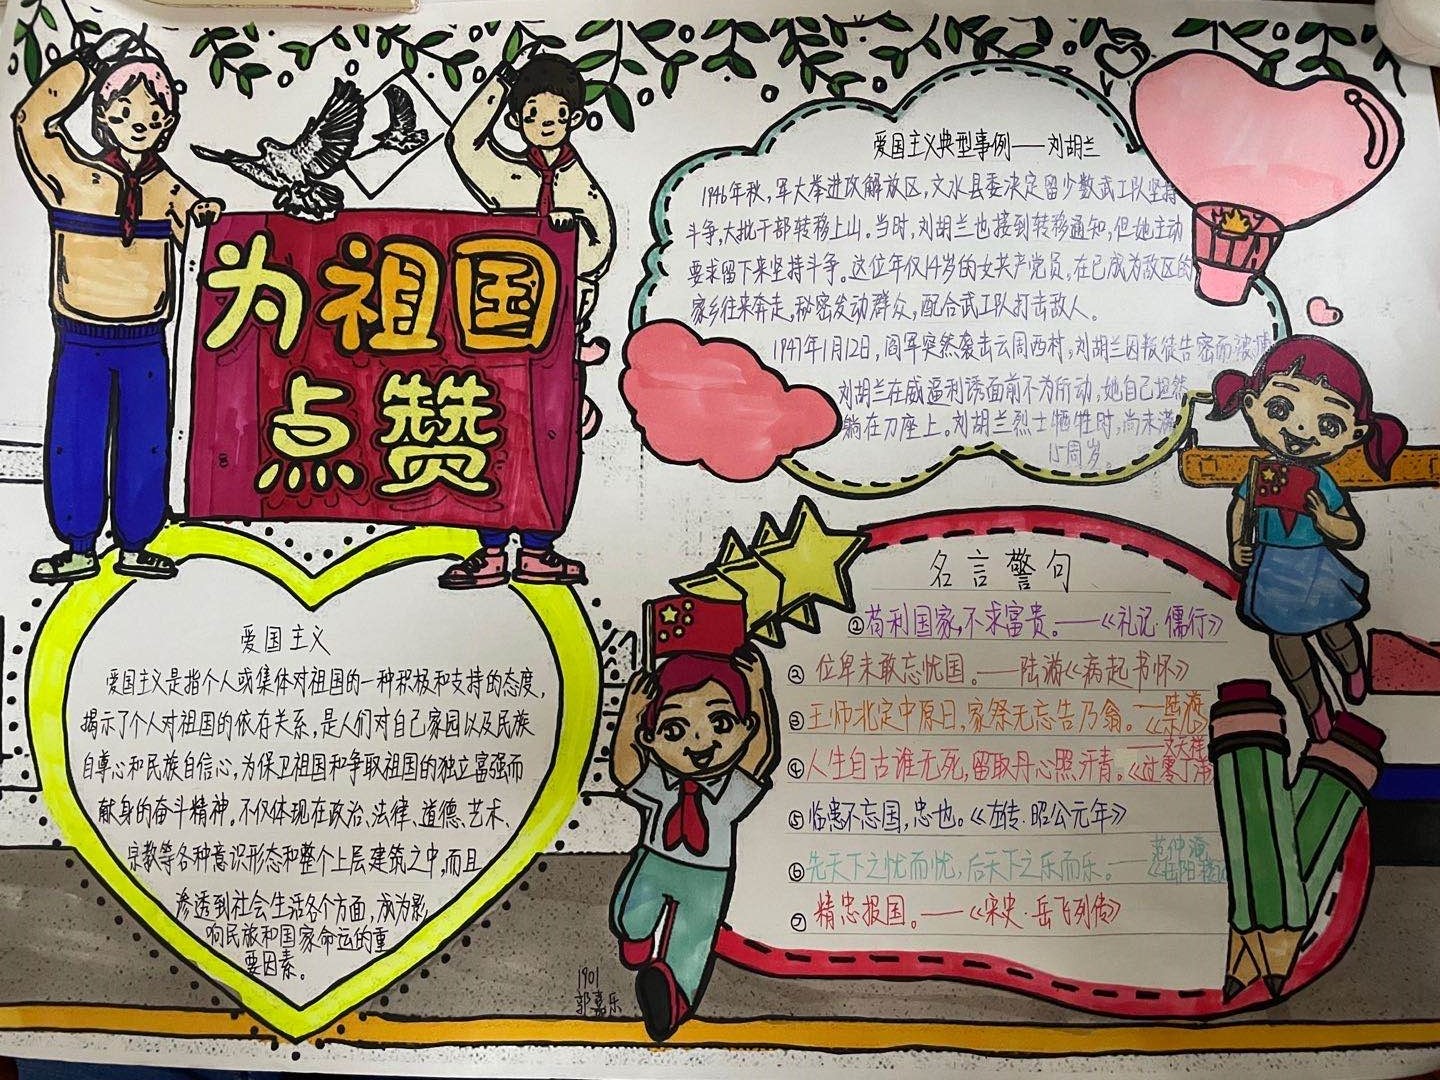 为祖国
点赞
爱国主义典型事例——刘胡兰
1946年秋，军大举进攻解放区，文水县委决定留少数武工队坚持
斗争，大批干部转移上山。当时，刘胡兰也接到转移通知，但她主动
要求留下来坚持斗争。这位年仅14岁的女共产党员，在已成为敌区的
家乡往来奔走，秘密发动群众，配合武工队打击敌人。
1947年1月12日，阎军突然袭击云周西村，刘胡兰因叛徒告密而被捕
刘胡兰在威逼利诱面前不为所动，她自己坦然
躺在刀座上。刘胡兰烈士牺牲时，尚未满
15周岁
爱国主义
爱国主义是指个人或集体对祖国的一种积极和支持的态度，
揭示了个人对祖国的依存关系，是人们对自己家园以及民族
自尊心和民族自信心，为保卫祖国和争取祖国的独立富强而
献身的奋斗精神。不仅体现在政治、法律、道德、艺术、
宗教等各种意识形态和整个上层建筑之中，而且
渗透到社会生活各个方面，成为影
响民族和国家命运的重
要因素。
名言警句
①苟利国家，不求富贵。——《礼记·儒行》
②位卑未敢忘忧国。——陆游《病起书怀》
③王师北定中原日，家祭无忘告乃翁。——陆游
《示儿》
④人生自古谁无死，留取丹心照汗青。——文天祥
《过零丁洋》
⑤临患不忘国，忠也。《左传·昭公元年》
⑥先天下之忧而忧，后天下之乐而乐。——范仲淹
《岳阳楼记
⑦精忠报国。——《宋史·岳飞列传》
1901
郭嘉乐